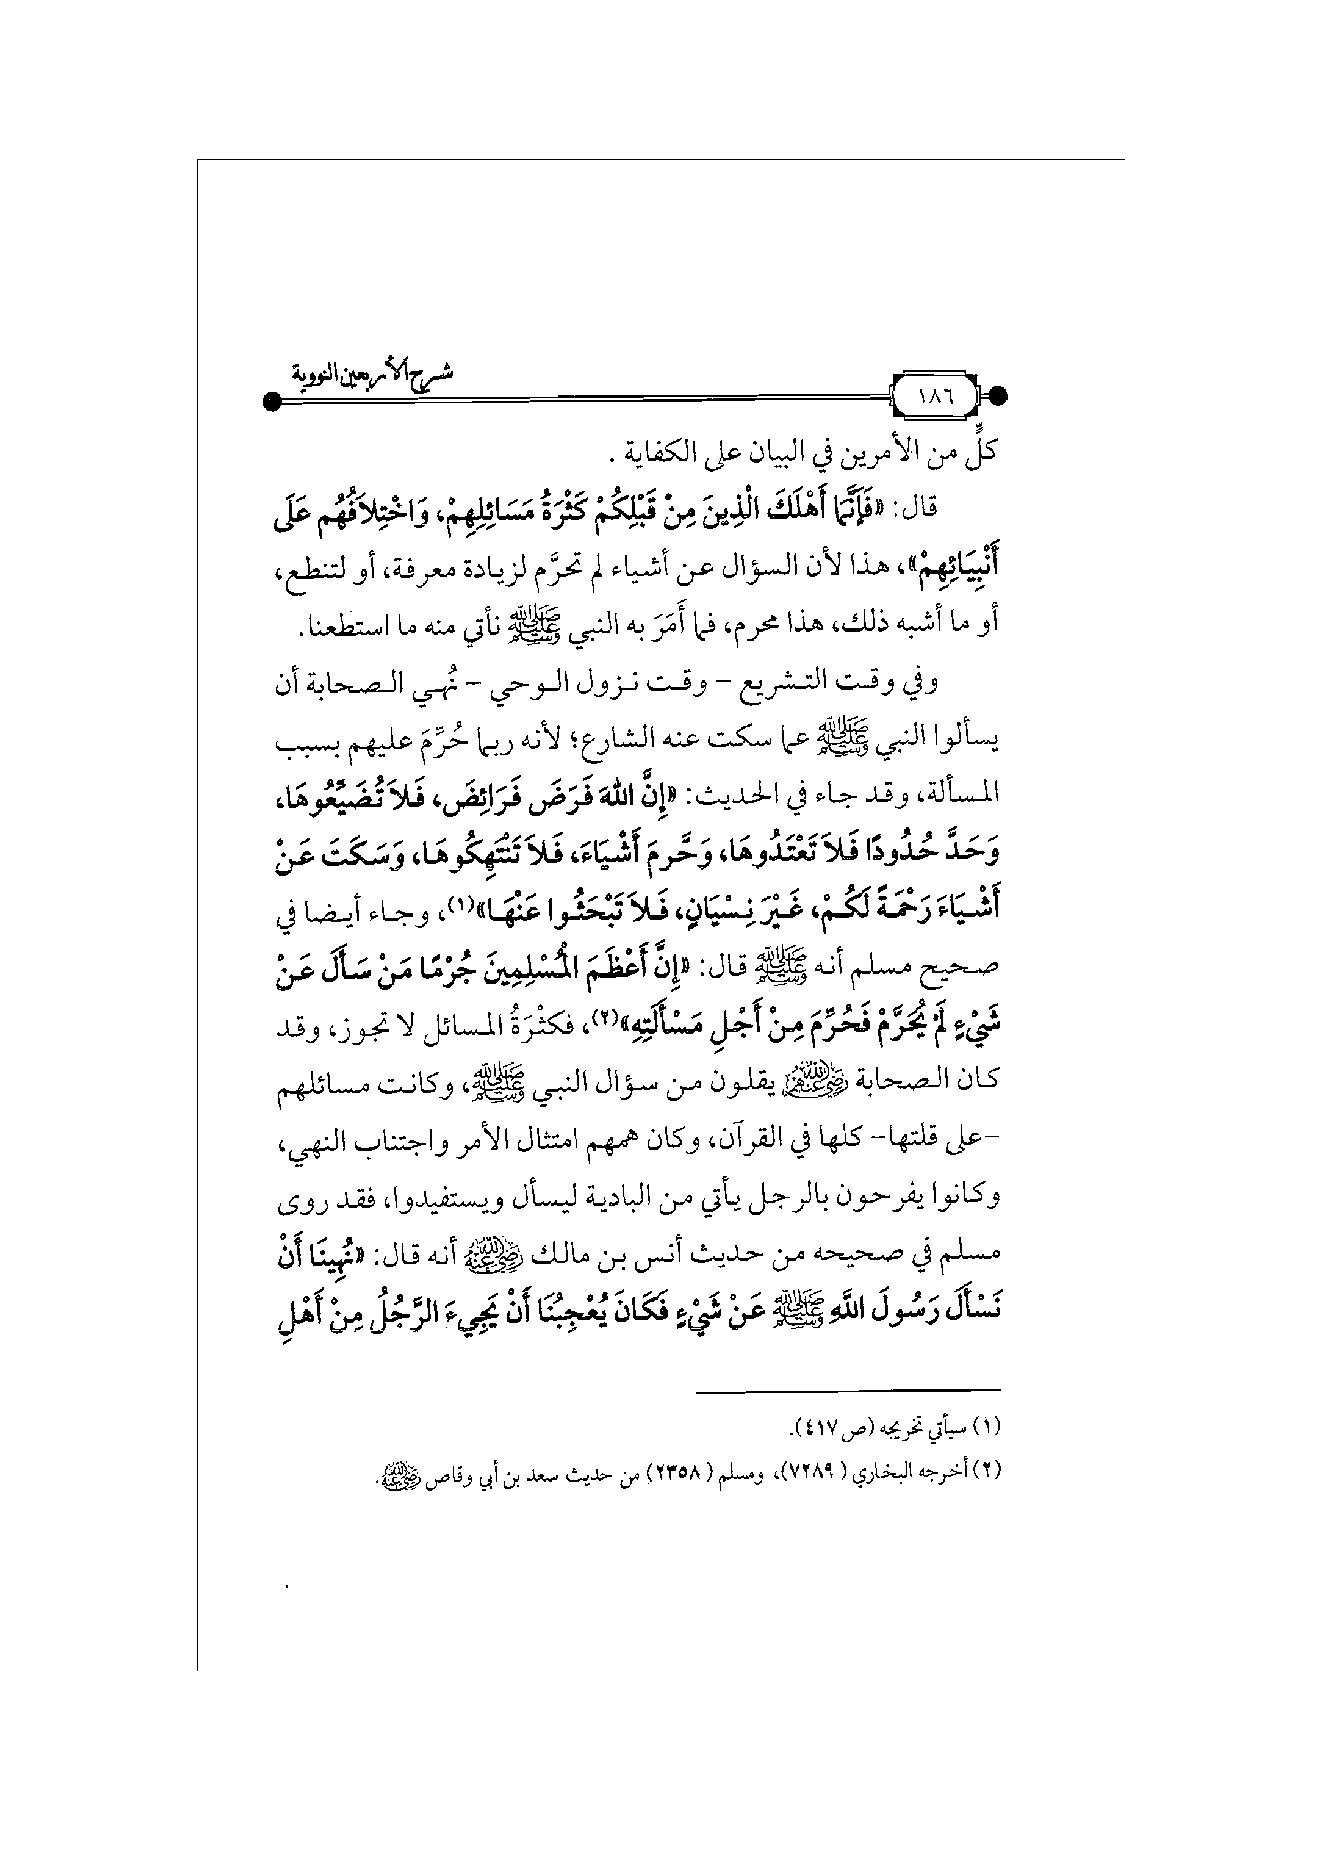 شرح الأربعين النووية
١٨٦
كلٍّ من الأمرين في البيان على الكفاية .
قال: «فَإِنَّمَا أَهْلَكَ الَّذِينَ مِنْ قَبْلِكُمْ كَثْرَةُ مَسَائِلِهِمْ، وَاخْتِلاَفُهُم عَلَى
أَنْبِيَائِهِمْ»، هذا لأن السؤال عن أشياء لم تحرَّم لزيادة معرفة، أو لتنطع،
أو ما أشبه ذلك، هذا محرم، فما أَمَرَ به النبي ﷺ نأتي منه ما استطعنا.
وفي وقت التشريع - وقت نزول الوحي - نُهي الصحابة أن
يسألوا النبي ﷺ عما سكت عنه الشارع؛ لأنه ربما حُرِّمَ عليهم بسبب
المسألة، وقد جاء في الحديث: «إِنَّ اللهَ فَرَضَ فَرَائِضَ، فَلاَ تُضَيِّعُوهَا،
وَحَدَّ حُدُودًا فَلاَ تَعْتَدُوهَا، وَحَّرمَ أَشْيَاءَ، فَلاَ تَنْتَهِكُوهَا، وَسَكَتَ عَنْ
أَشْيَاءَ رَحْمَةً لَكُمْ، غَيْرَ نِسْيَانٍ، فَلاَ تَبْحَثُوا عَنْهَا»(١)، وجاء أيضا في
صحيح مسلم أنه ﷺ قال: «إِنَّ أَعْظَمَ المُسْلِمِينَ جُرْمًا مَنْ سَأَلَ عَنْ
شَيْءٍ لَمْ يُحَرَّمْ فَحُرِّمَ مِنْ أَجْلِ مَسْأَلَتِهِ»(٢)، فكثْرَةُ المسائل لا تجوز، وقد
كان الصحابة رضي الله عنهم يقلون من سؤال النبي ﷺ، وكانت مسائلهم
-على قلتها- كلها في القرآن، وكان همهم امتثال الأمر واجتناب النهي،
وكانوا يفرحون بالرجل يأتي من البادية ليسأل ويستفيدوا، فقد روى
مسلم في صحيحه من حديث أنس بن مالك رضي الله عنه أنه قال: «نُهِينَا أَنْ
نَسْأَلَ رَسُولَ اللَّهِ ﷺ عَنْ شَيْءٍ فَكَانَ يُعْجِبُنَا أَنْ يَجِيءَ الرَّجُلُ مِنْ أَهْلِ
(١) سيأتي تخريجه (ص٤١٧).
(٢) أخرجه البخاري (٧٢٨٩)، ومسلم (٢٣٥٨) من حديث سعد بن أبي وقاص رضي الله عنه.